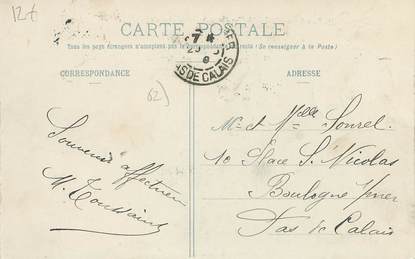 12t
CARTE POSTALE
Tous les pays étrangers n'acceptent pas la correspondance au recto (Se renseigner à la Poste)
CORRESPONDANCE
ADRESSE
MER
7 *
PAS DE CALAIS
62)
Souvenir affectueux
M. Toussaint
Mr et Mselle Sourel
10 Place S. Nicolas
Boulogne s/mer
Pas de Calais